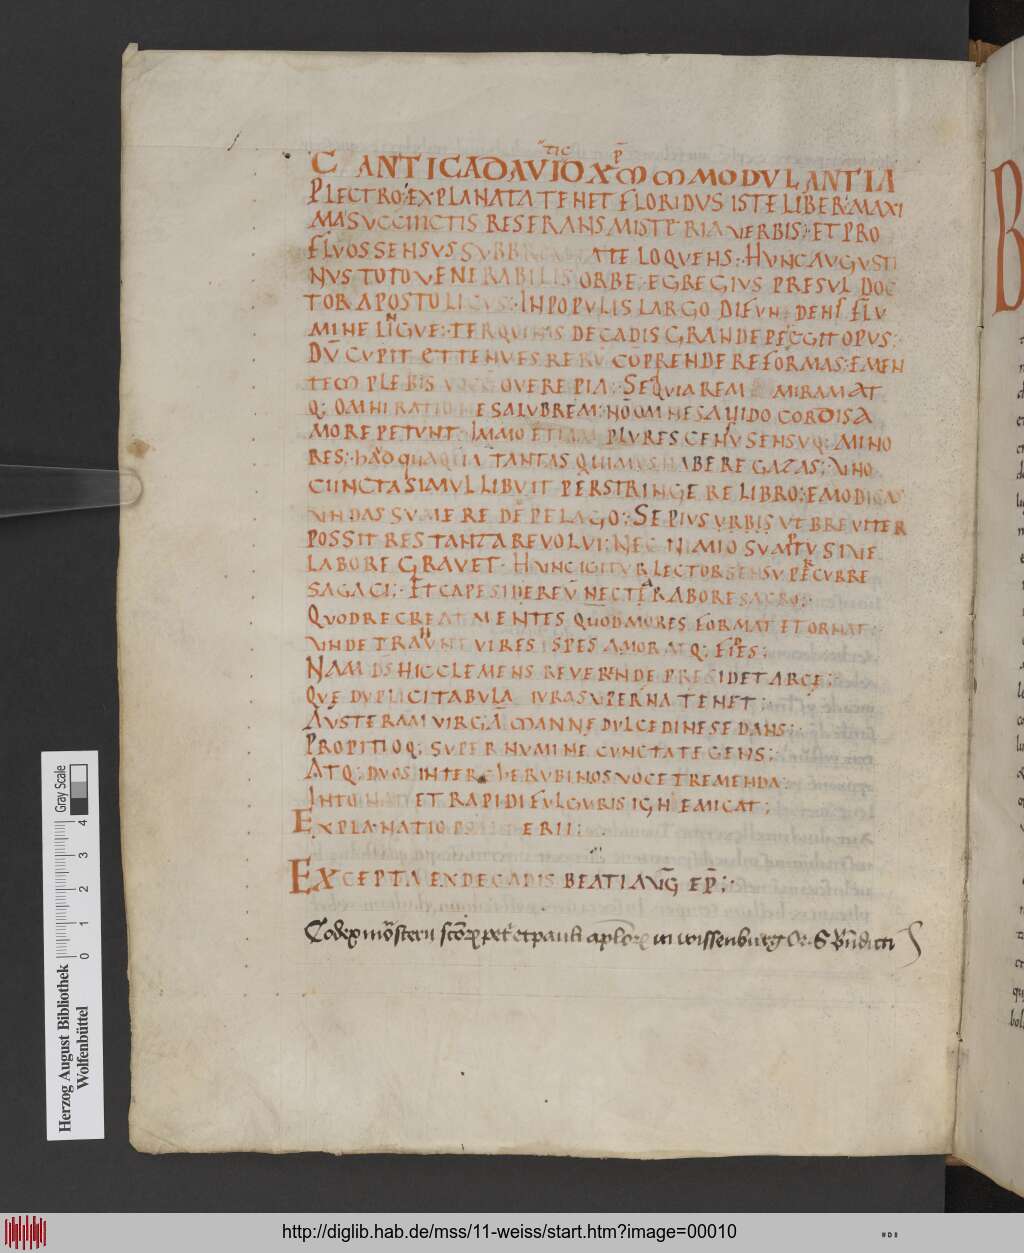 CANTICA DAVIDTIC XPM MODVLANTIA
PLECTRO: EXPLANATA TENET FLORIDVS ISTE LIBER: MAXI
MA SVCCINCTIS RESERANS MISTERIA VERBIS: ET PRO
FLVOS SENSVS SVBBR ATE LOQVENS: HVNC AVGVSTI
NVS TOTO VENERABILIS ORBE: EGREGIVS PRESVL DOC
TOR APOSTOLICVS: IN POPVLIS LARGO DIFVNDENS FLV
MINE LINGVE: TER QVINIS DECADIS GRANDE PEGIT OPVS:
DV̄ CVPIT ET TENVES RERV̄ CŌPRENDERE FORMAS: E MEN
TEM PLEBIS OVERE PIA: SED QVIA REM MIRAM AT
Q: OMNI RATIONE SALVBREM: NŌ OMNES AVIDO CORDIS A
MORE PETVNT: IMMO ETIAM PLVRES CENV SENSVQ: MINO
RES: HAVD QVAQVA TANTAS QVIMVS HABERE GAZAS: VNO
CVNCTA SIMVL LIBVIT PERSTRINGERE LIBRO: E MODICAS
VNDAS SVMERE DE PELAGO: SEPIVS VRBIS VT BREVITER
POSSIT RES TANTA REVOLVI: NEC NIMIO SVMPTV SIVE
LABORE GRAVET: HVNC IGITVR LECTOR SENSV PERCVRRE
SAGACI: ET CAPE SIDEREV̄ NECTAR AB ORE SACRO:
QVOD RECREAT MENTES QVOD MORES FORMAT ET ORNAT:
VNDE TRAHVNT VIRES SPES AMOR ATQ: FIDES:
NAM D̄S HIC CLEMENS REVERENDE PRESIDET ARCE:
QVE DVPLICI TABVLA IVRA SVPERNA TENET:
AVSTERAM VIRGĀ MANNE DVLCEDINE SEDANS:
PROPITIOQ: SVPER NVMINE CVNCTA TEGENS:
ATQ: DVOS INTER CHERVBINOS VOCE TREMENDA:
INTONAT ET RAPIDI FVLGVRIS IGNE MICAT:
EXPLANATIO PSALTERII:
EXCEPTA EX DECADIS BEATI AVḠ EP̄:
Codex mōsterii scōrꝝ petri et pauli aplōrꝝ in wissenburg Or. S Bn̄dicti
Herzog August Bibliothek
Wolfenbüttel
0 1 2 3 4
Gray Scale
http://diglib.hab.de/mss/11-weiss/start.htm?image=00010